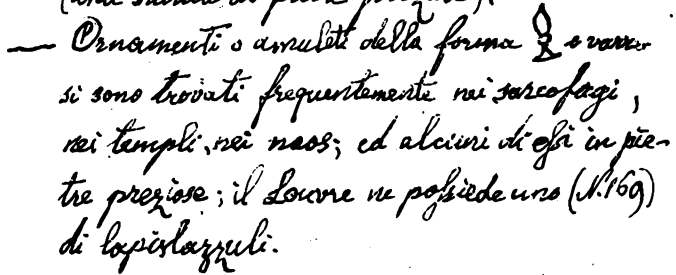 — Ornamenti o amuleti della forma
si sono trovati frequentemente nei sarcofagi,
nei templi, nei naos; ed alcuni di essi in pie-
tre preziose; il Louvre ne possiede uno (N. 169)
di lapislazzuli.